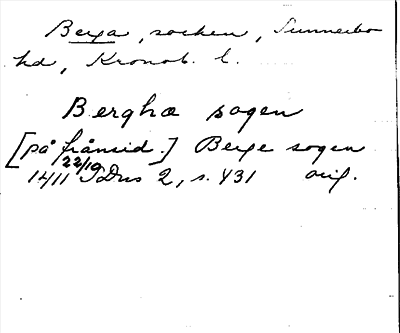 Berga, socken, Sunnerbo
hd, Kronob. l.
Berghæ sogen
[på frånsid.] Berge sogen
22/10
1411 SDns 2, s. 431 orig.